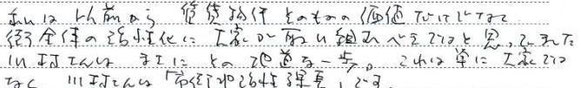 私は以前から 賃貸物件 そのものの価値だけでなく
街全体の活性化に 大家が取り組むべきではと思っていました
川村さんは まさに その地道な一歩。これは単に大家では
なく 川村さんは「商街地活性課長」です。